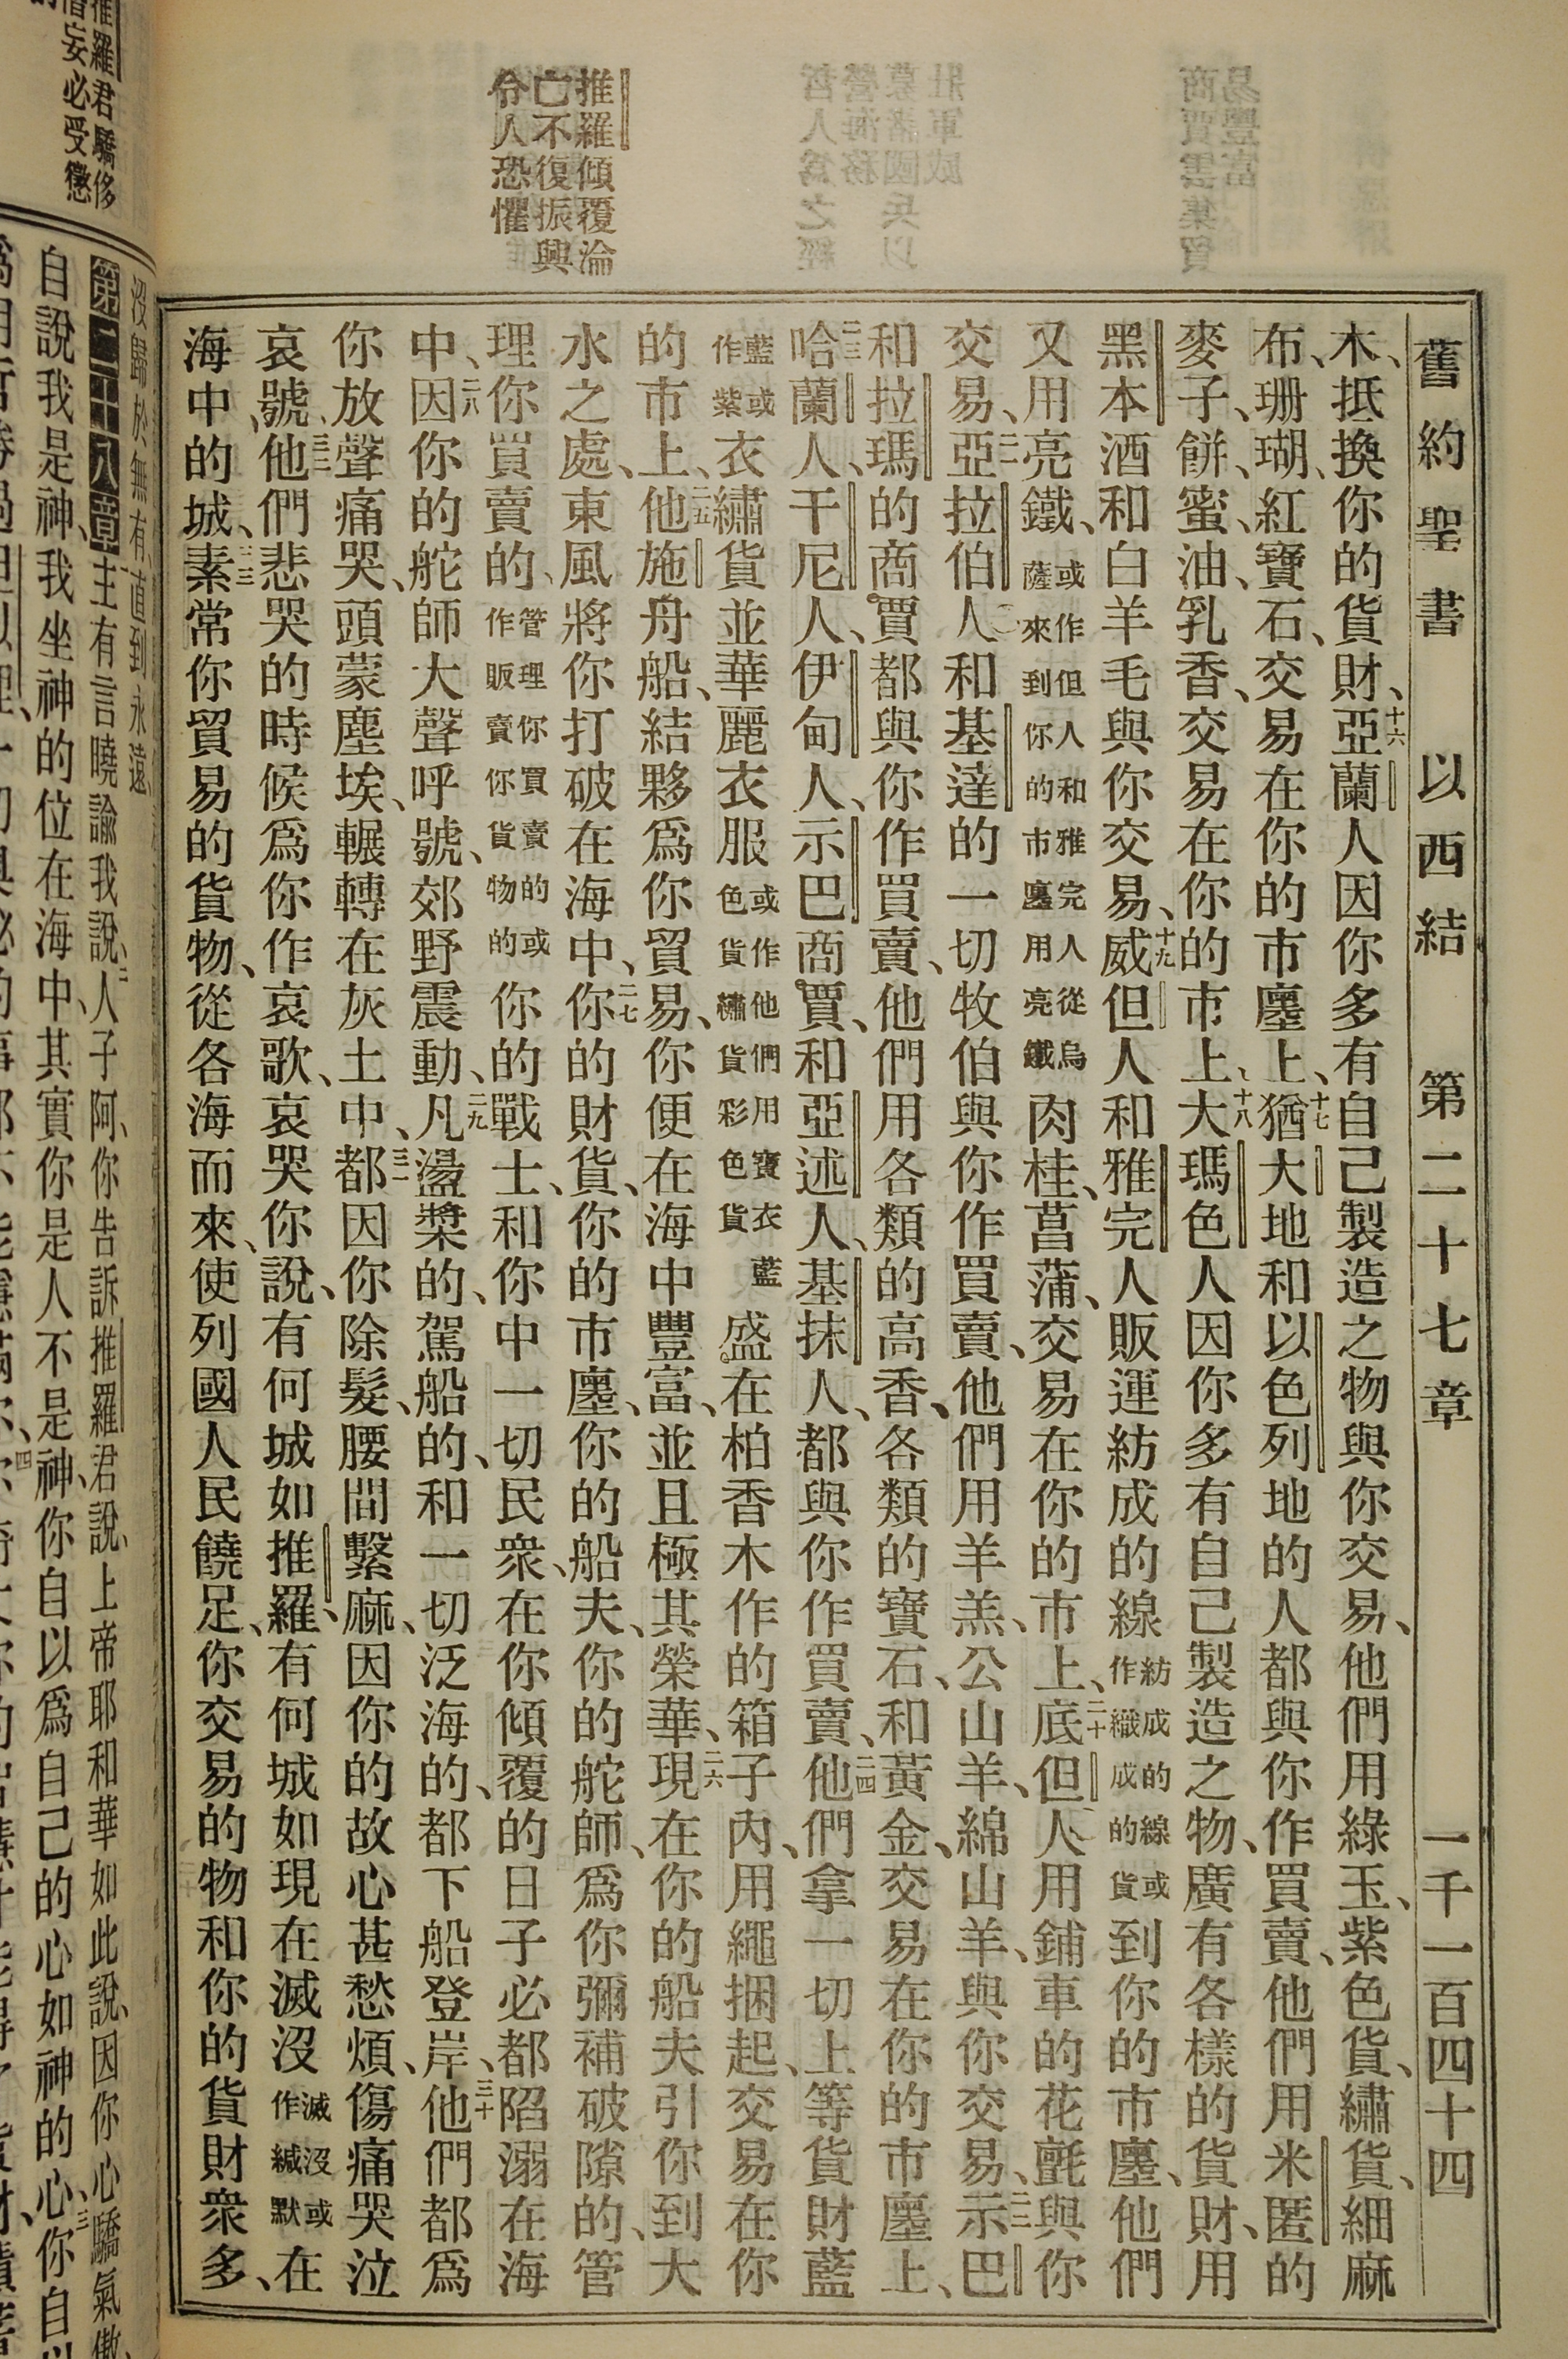 舊約聖書 以西結 第二十七章 一千一百四十四
推羅傾覆淪
亡不復振興
令人恐懼
木、抵換你的貨財、十六亞蘭人因你多有自己製造之物與你交易、他們用綠玉、紫色貨、繡貨、細麻
布、珊瑚、紅寶石、交易在你的市廛上、十七猶大地和以色列地的人都與你作買賣、他們用米匿的
麥子、餅、蜜、油、乳香、交易在你的市上、十八大瑪色人因你多有自己製造之物、廣有各樣的貨財、用
黑本酒和白羊毛與你交易、十九威但人和雅完人販運紡成的線紡成的線或作織成的貨到你的市廛、他們
又用亮鐵、或作但人和雅完人從烏薩來到你的市廛用亮鐵肉桂、菖蒲、交易在你的市上、二十底但人用鋪車的花氈與你
交易、二一亞拉伯人和基達的一切牧伯與你作買賣、他們用羊羔、公山羊、綿山羊、與你交易、二二示巴
和拉瑪的商賈都與你作買賣、他們用各類的高香、各類的寶石、和黃金、交易在你的市廛上、
二三哈蘭人、干尼人、伊甸人、示巴商賈、和亞述人、基抹人、都與你作買賣、二四他們拿一切上等貨財藍
藍或作紫衣繡貨並華麗衣服或作他們用寶衣藍色貨繡貨彩色貨盛在柏香木作的箱子內、用繩捆起、交易在你
的市上、二五他施舟船、結夥爲你貿易、你便在海中豐富、並且極其榮華、二六現在你的船夫引你到大
水之處、東風將你打破在海中、二七你的財貨、你的市廛、你的船夫、你的舵師、爲你彌補破隙的、管
理你買賣的、管理你買賣的或作販賣你貨物的你的戰士、和你中一切民衆、在你傾覆的日子必都陷溺在海
中、二八因你的舵師大聲呼號、郊野震動、二九凡盪槳的、駕船的、和一切泛海的、都下船登岸、三十他們都爲
你放聲痛哭、頭蒙塵埃、輾轉在灰土中、三一都因你除髮、腰間繫麻、因你的故心甚愁煩、傷痛哭泣
哀號、三二他們悲哭的時候爲你作哀歌、哀哭你說、有何城如推羅、有何城如現在滅沒滅沒或作緘默在
海中的城、三三素常你貿易的貨物、從各海而來、使列國人民饒足、你交易的物和你的貨財衆多、
推羅君驕侈
僭妄必受懲
沒歸於無有、直到永遠、
第二十八章 主有言曉諭我說、二人子阿、你告訴推羅君說、上帝耶和華如此說、因你心驕氣傲、
自說我是神、我坐神的位在海中、其實你是人不是神、你自以爲自己的心如神的心、三你自以